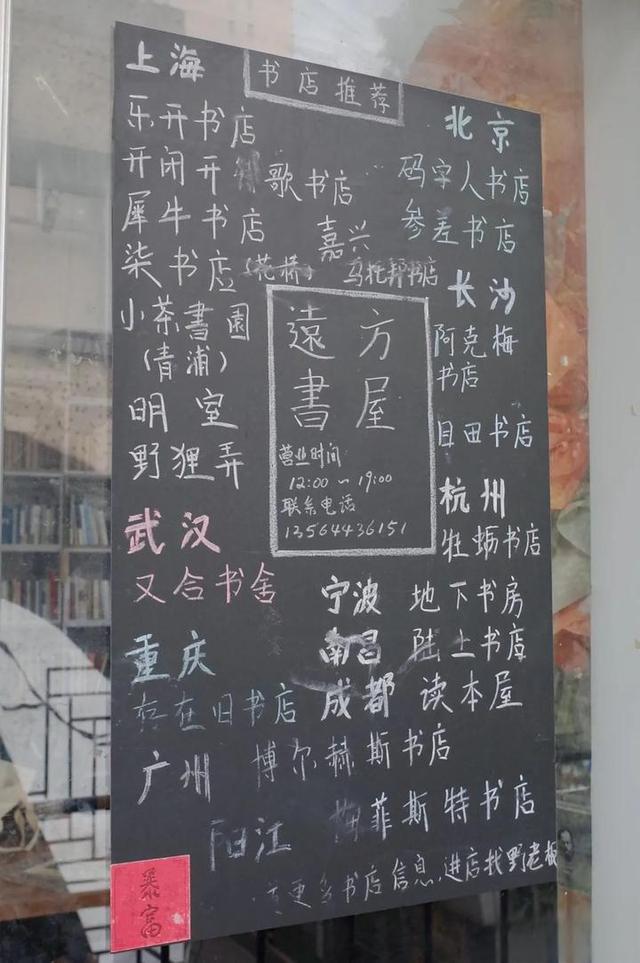 书店推荐
上海
乐开书店
开闭开 歌书店
犀牛书店
柒书店(花桥)
小茶書園
(青浦)
明室
野狸弄
嘉兴
乌托邦书店
北京
码字人书店
参差书店
长沙
阿克梅
书店
目田书店
杭州
牡蛎书店
遠方
書屋
营业时间
12:00~19:00
联系电话
13564436151
武汉
又合书舍
宁波 地下书房
南昌 陆上书店
成都 读本屋
重庆
存在旧书店
广州 博尔赫斯书店
阳江 梅菲斯特书店
更多书店信息,进店找野老板
暴富